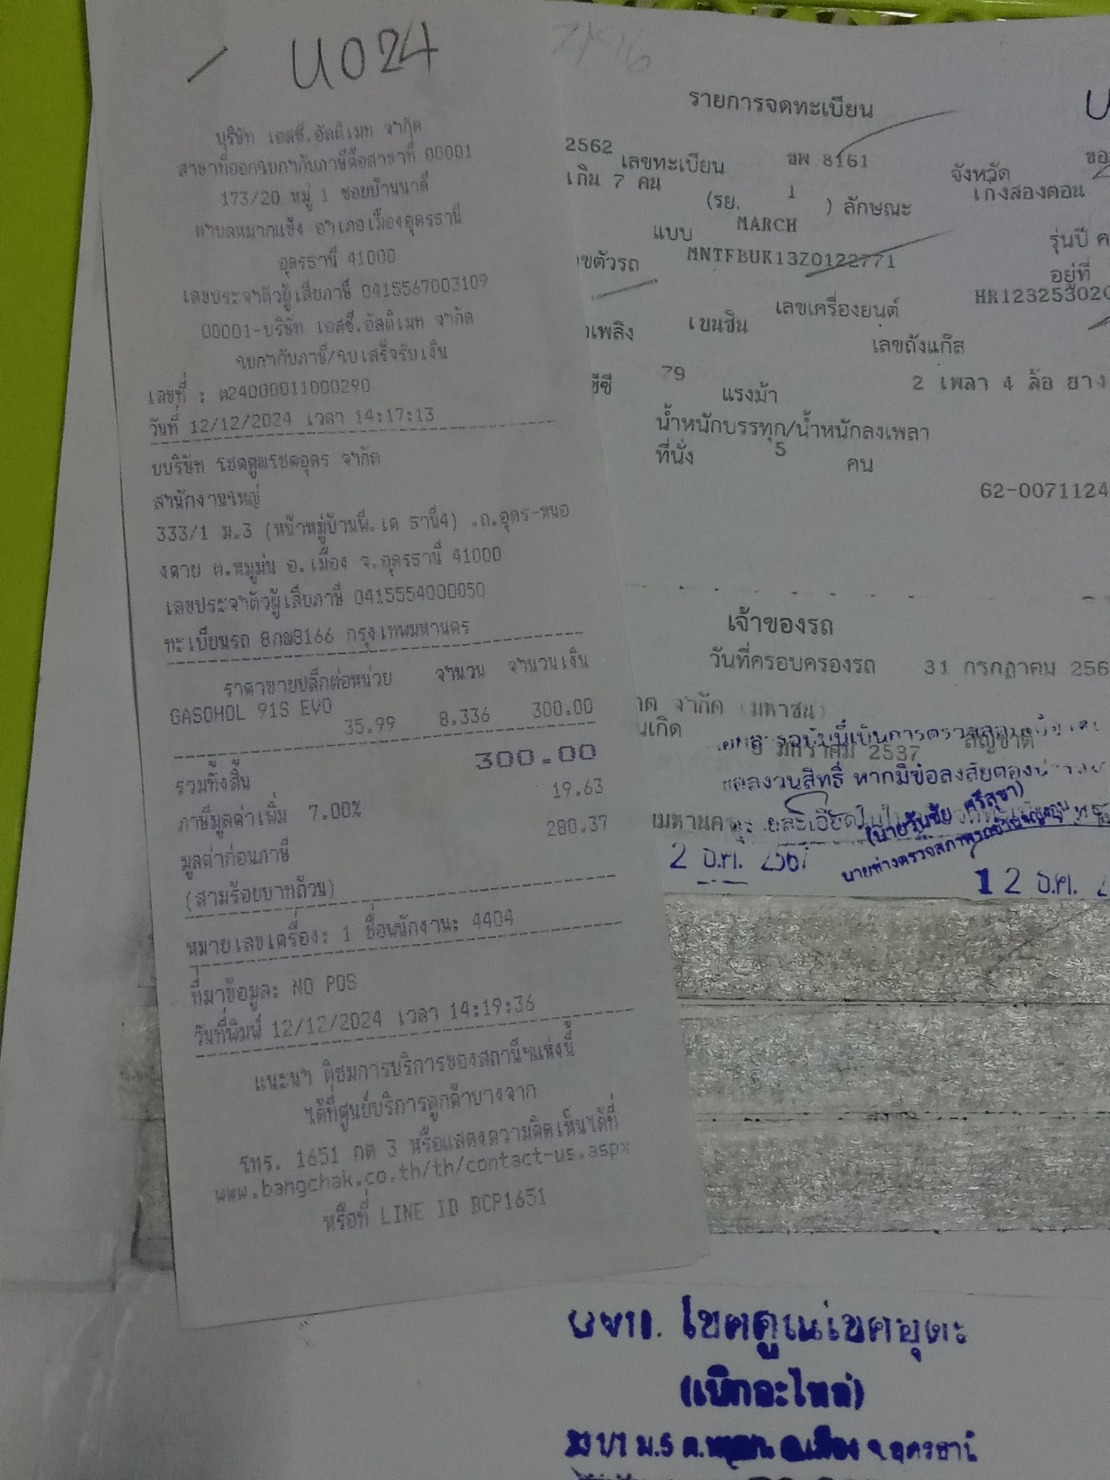 U024
บริษัท เอสซี.อัลติเมท จำกัด
สาขาที่ออกใบกำกับภาษีคือสาขาที่ 00001
173/20 หมู่ 1 ซอยบ้านนาดี
ตำบลหมากแข้ง อำเภอเมืองอุดรธานี
อุดรธานี 41000
เลขประจำตัวผู้เสียภาษี 0415567003109
00001-บริษัท เอสซี.อัลติเมท จำกัด
ใบกำกับภาษี/ใบเสร็จรับเงิน
เลขที่ : ต24000011000290
วันที่ 12/12/2024 เวลา 14:17:13
บบริษัท โชคคูณโชคอุดร จำกัด
สำนักงานใหญ่
333/1 ม.3 (หน้าหมู่บ้านพี.เค ธานี4) .ถ.อุดร-หนอ
งคาย ต.หมูม่น อ.เมือง จ.อุดรธานี 41000
เลขประจำตัวผู้เสียภาษี 0415554000050
ทะเบียนรถ 8กฒ8166 กรุงเทพมหานคร
ราคาขายปลีกต่อหน่วย จำนวน จำนวนเงิน
GASOHOL 91S EVO
35.99 8.336 300.00
รวมทั้งสิ้น 300.00
ภาษีมูลค่าเพิ่ม 7.00% 19.63
มูลค่าก่อนภาษี 280.37
(สามร้อยบาทถ้วน)
หมายเลขเครื่อง: 1 ชื่อพนักงาน: 4404
ที่มาข้อมูล: NO POS
วันที่พิมพ์ 12/12/2024 เวลา 14:19:36
แนะนำ ติชมการบริการของสถานีฯแห่งนี้
ได้ที่ศูนย์บริการลูกค้าบางจาก
โทร. 1651 กด 3 หรือแสดงความคิดเห็นได้ที่
www.bangchak.co.th/th/contact-us.aspx
หรือที่ LINE ID BCP1651
รายการจดทะเบียน
2562 เลขทะเบียน ขพ 8161 จังหวัด
เกิน 7 คน (รย. 1 ) ลักษณะ เก๋งสองตอน
แบบ MARCH รุ่นปี ค
ขตัวรถ MNTFBUK13Z0122771 อยู่ที่
เลขเครื่องยนต์ HR12325302
เพลิง เบนซิน เลขถังแก๊ส
ซีซี 79 แรงม้า 2 เพลา 4 ล้อ ยาง
น้ำหนักบรรทุก/น้ำหนักลงเพลา
ที่นั่ง 5 คน
62-0071124
เจ้าของรถ
วันที่ครอบครองรถ 31 กรกฎาคม 256
จำกัด (มหาชน)
นเกิด มกราคม 2537 สัญชาติ
สงวนสิทธิ์ หากมีข้อสงสัย
(นายวันชัย ศรีสุขา)
2 ธ.ค. 2567
12 ธ.ค.
โชคคูณโชคอุดร
(เบิกอะไหล่)